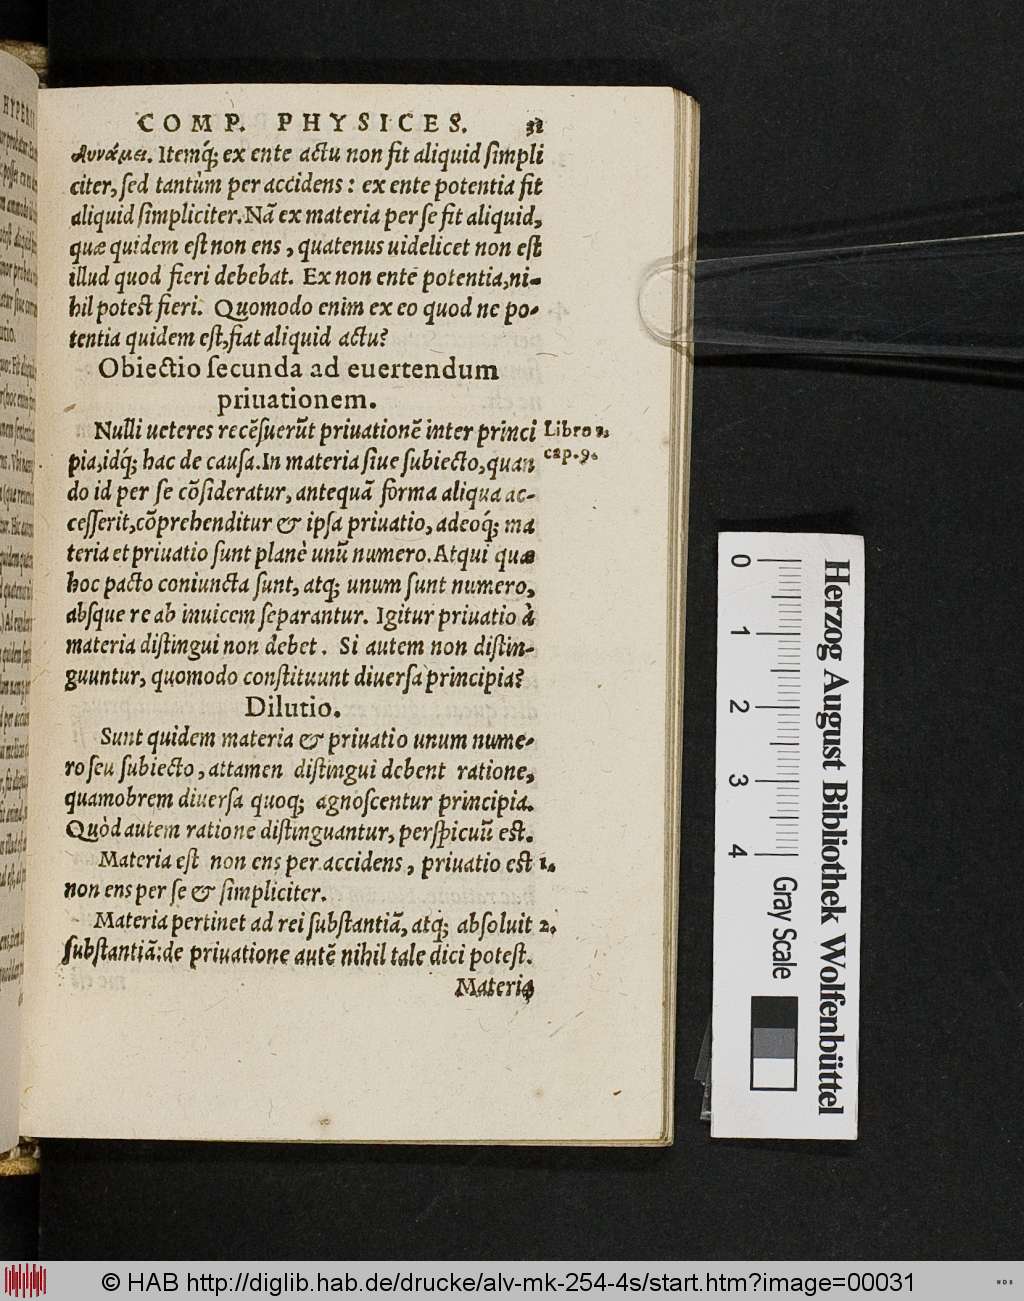 COMP. PHYSICES. 32
δυνάμει. Itemq́; ex ente actu non fit aliquid ſimpli
citer, ſed tantùm per accidens: ex ente potentia fit
aliquid ſimpliciter. Nã ex materia per ſe fit aliquid,
quæ quidem eſt non ens, quatenus uidelicet non eſt
illud quod fieri debebat. Ex non ente potentia, ni-
hil poteſt fieri. Quomodo enim ex eo quod ne po-
tentia quidem eſt, fiat aliquid actu?
Obiectio ſecunda ad euertendum
priuationem.
Nulli ueteres recẽſuerũt priuationẽ inter princi
Libro 1.
pia, idq́; hac de cauſa. In materia ſiue ſubiecto, quan
cap. 9.
do id per ſe cõſideratur, antequã forma aliqua ac-
ceſſerit, cõprehenditur & ipſa priuatio, adeoq́; ma
teria et priuatio ſunt planè unũ numero. Atqui quæ
hoc pacto coniuncta ſunt, atq; unum ſunt numero,
absque re ab inuicem ſeparantur. Igitur priuatio à
materia diſtingui non debet. Si autem non diſtin-
guuntur, quomodo conſtituunt diuerſa principia?
Dilutio.
Sunt quidem materia & priuatio unum nume-
ro ſeu ſubiecto, attamen diſtingui debent ratione,
quamobrem diuerſa quoq; agnoſcentur principia.
Quòd autem ratione diſtinguantur, perſpicuũ eſt.
Materia eſt non ens per accidens, priuatio eſt 1.
non ens per ſe & ſimpliciter.
Materia pertinet ad rei ſubſtantiã, atq; abſoluit 2.
ſubſtantiã: de priuatione autẽ nihil tale dici poteſt.
Materia
0 1 2 3 4
Gray Scale
Herzog August Bibliothek Wolfenbüttel
© HAB http://diglib.hab.de/drucke/alv-mk-254-4s/start.htm?image=00031